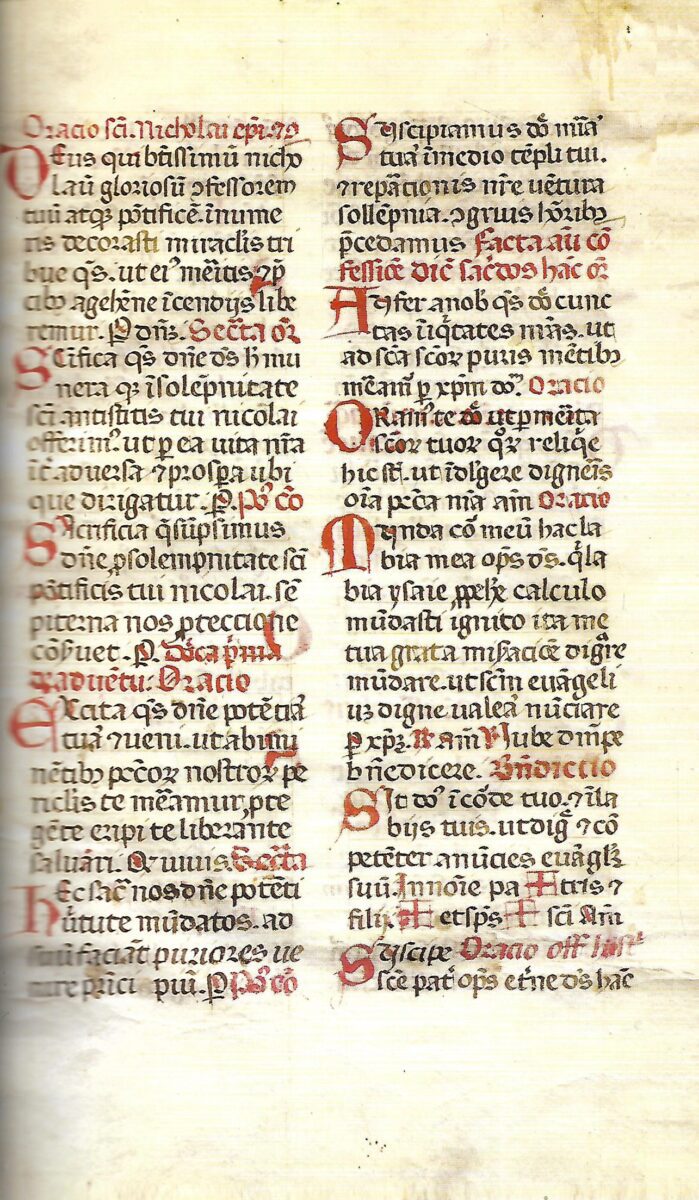 Oracio sc̄i Nicholai ep̄i
Deus qui bt̄issimū nicho
laū gloriosū ꝯfessorem
tuū atqꝫ pōtificē īnume
ris decorasti miraclis tri
bue qs̄ ut eiꝰ mēitis ⁊ p̄
cibꝫ a gehēne īcendijs libe
remur . ꝑ dn̄ꝫ . Sec̄ta or̄
Sc̄ifica qs̄ dn̄e ds̄ h̄ mu
nera qꝫ ī solēpnitate
sc̄i antistitis tui nicolai
offerimꝰ ut ꝑ ea uita nr̄a
īt̄ adversa ⁊ prospera ubi
que dirigatur . ꝑ . Pꝰ cō
Sacrificia q̄ sūpsimus
dn̄e ꝓ solempnitate sc̄i
pōtificis tui nicolai . sē
piterna nos ꝓteccione
cōẜuet . ꝑ . Dōca p̄ma
adventu : Oracio
Excita qs̄ dn̄e potēciā
tuā ⁊ veni . ut ab īmi
nētibꝫ pec̄oꝝ nostroꝝ pe
riclis te mēamur ꝓte
gēte eripi te liberante
salvari . Q̄ vivis . Sec̄ta
Hec sac̄ nos dn̄e potēti
ūtute mūdatos . ad
suū faciāt puriores ve
nire p̄nci piū . ꝑ Pꝰ cō
Suscipiamus dō mīā
tuā ī medio tēpli tui .
⁊ repac̄ionis nr̄e vētura
sollēpnia . ꝯgruis hōribꝫ
p̄cedamus Facta aū cō
fessiōe dic̄ sac̄dos hāc or̄
Aufer a nob̄ qs̄ dō cunc
tas īiq̄tates nr̄as . ut
ad sc̄a scōꝝ puris mētibꝫ
mēamꝰ ꝑ xp̄m doꝰ . Oracio
Oramꝰ te dō ut per mēita
scōꝝ tuoꝝ qōꝝ reliq̄e
hic st̄ . ut īdlgere digneīs
oīa pec̄a mīa am̄ Oracio
Munda coꝰ meū hac la
bia mea op̄s ds̄ . q̄ la
bia ysaie ꝓphē calculo
mūdasti ignito ita me
tua grata miẜacioē digr̄e
mūdare . ut sc̄m euāgeli
uꝫ digne valeā nūciare
ꝑ xp̄ꝫ . R̄ am̄ Jube dn̄pe
bn̄edicere . Bn̄diccio
Sit doꝰ ī corde tuo . ⁊ ī la
bijs tuis . ut diḡ ⁊ cō
petēter anūcies euāglꝫ
suū . In noīe pa ✠ tris ⁊
filij ✠ et sp̄s ✠ sc̄i Am̄
Suscipe Oracio off host̄
sc̄e pat̄ op̄s et̄ne ds̄ hāc